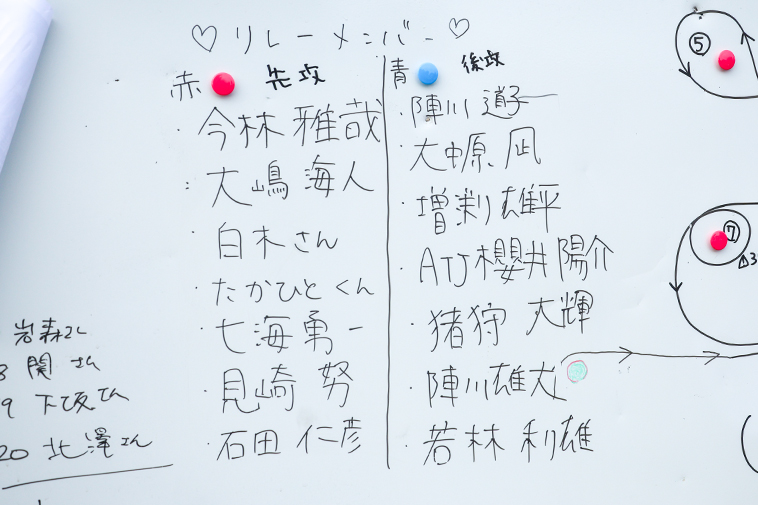 ♡リレーメンバー♡
赤 先攻
今林 雅哉
大嶋 海人
白木さん
たかひとくん
七海勇一
見崎 努
石田 仁彦
青 後攻
陣川 道子
大中原 凪
増渕雄平
ATJ櫻井陽介
猪狩 大輝
陣川雄大
若林 利雄
岩森さん
8 関 さん
9 下坂さん
20 北澤さん
⑤
⑦